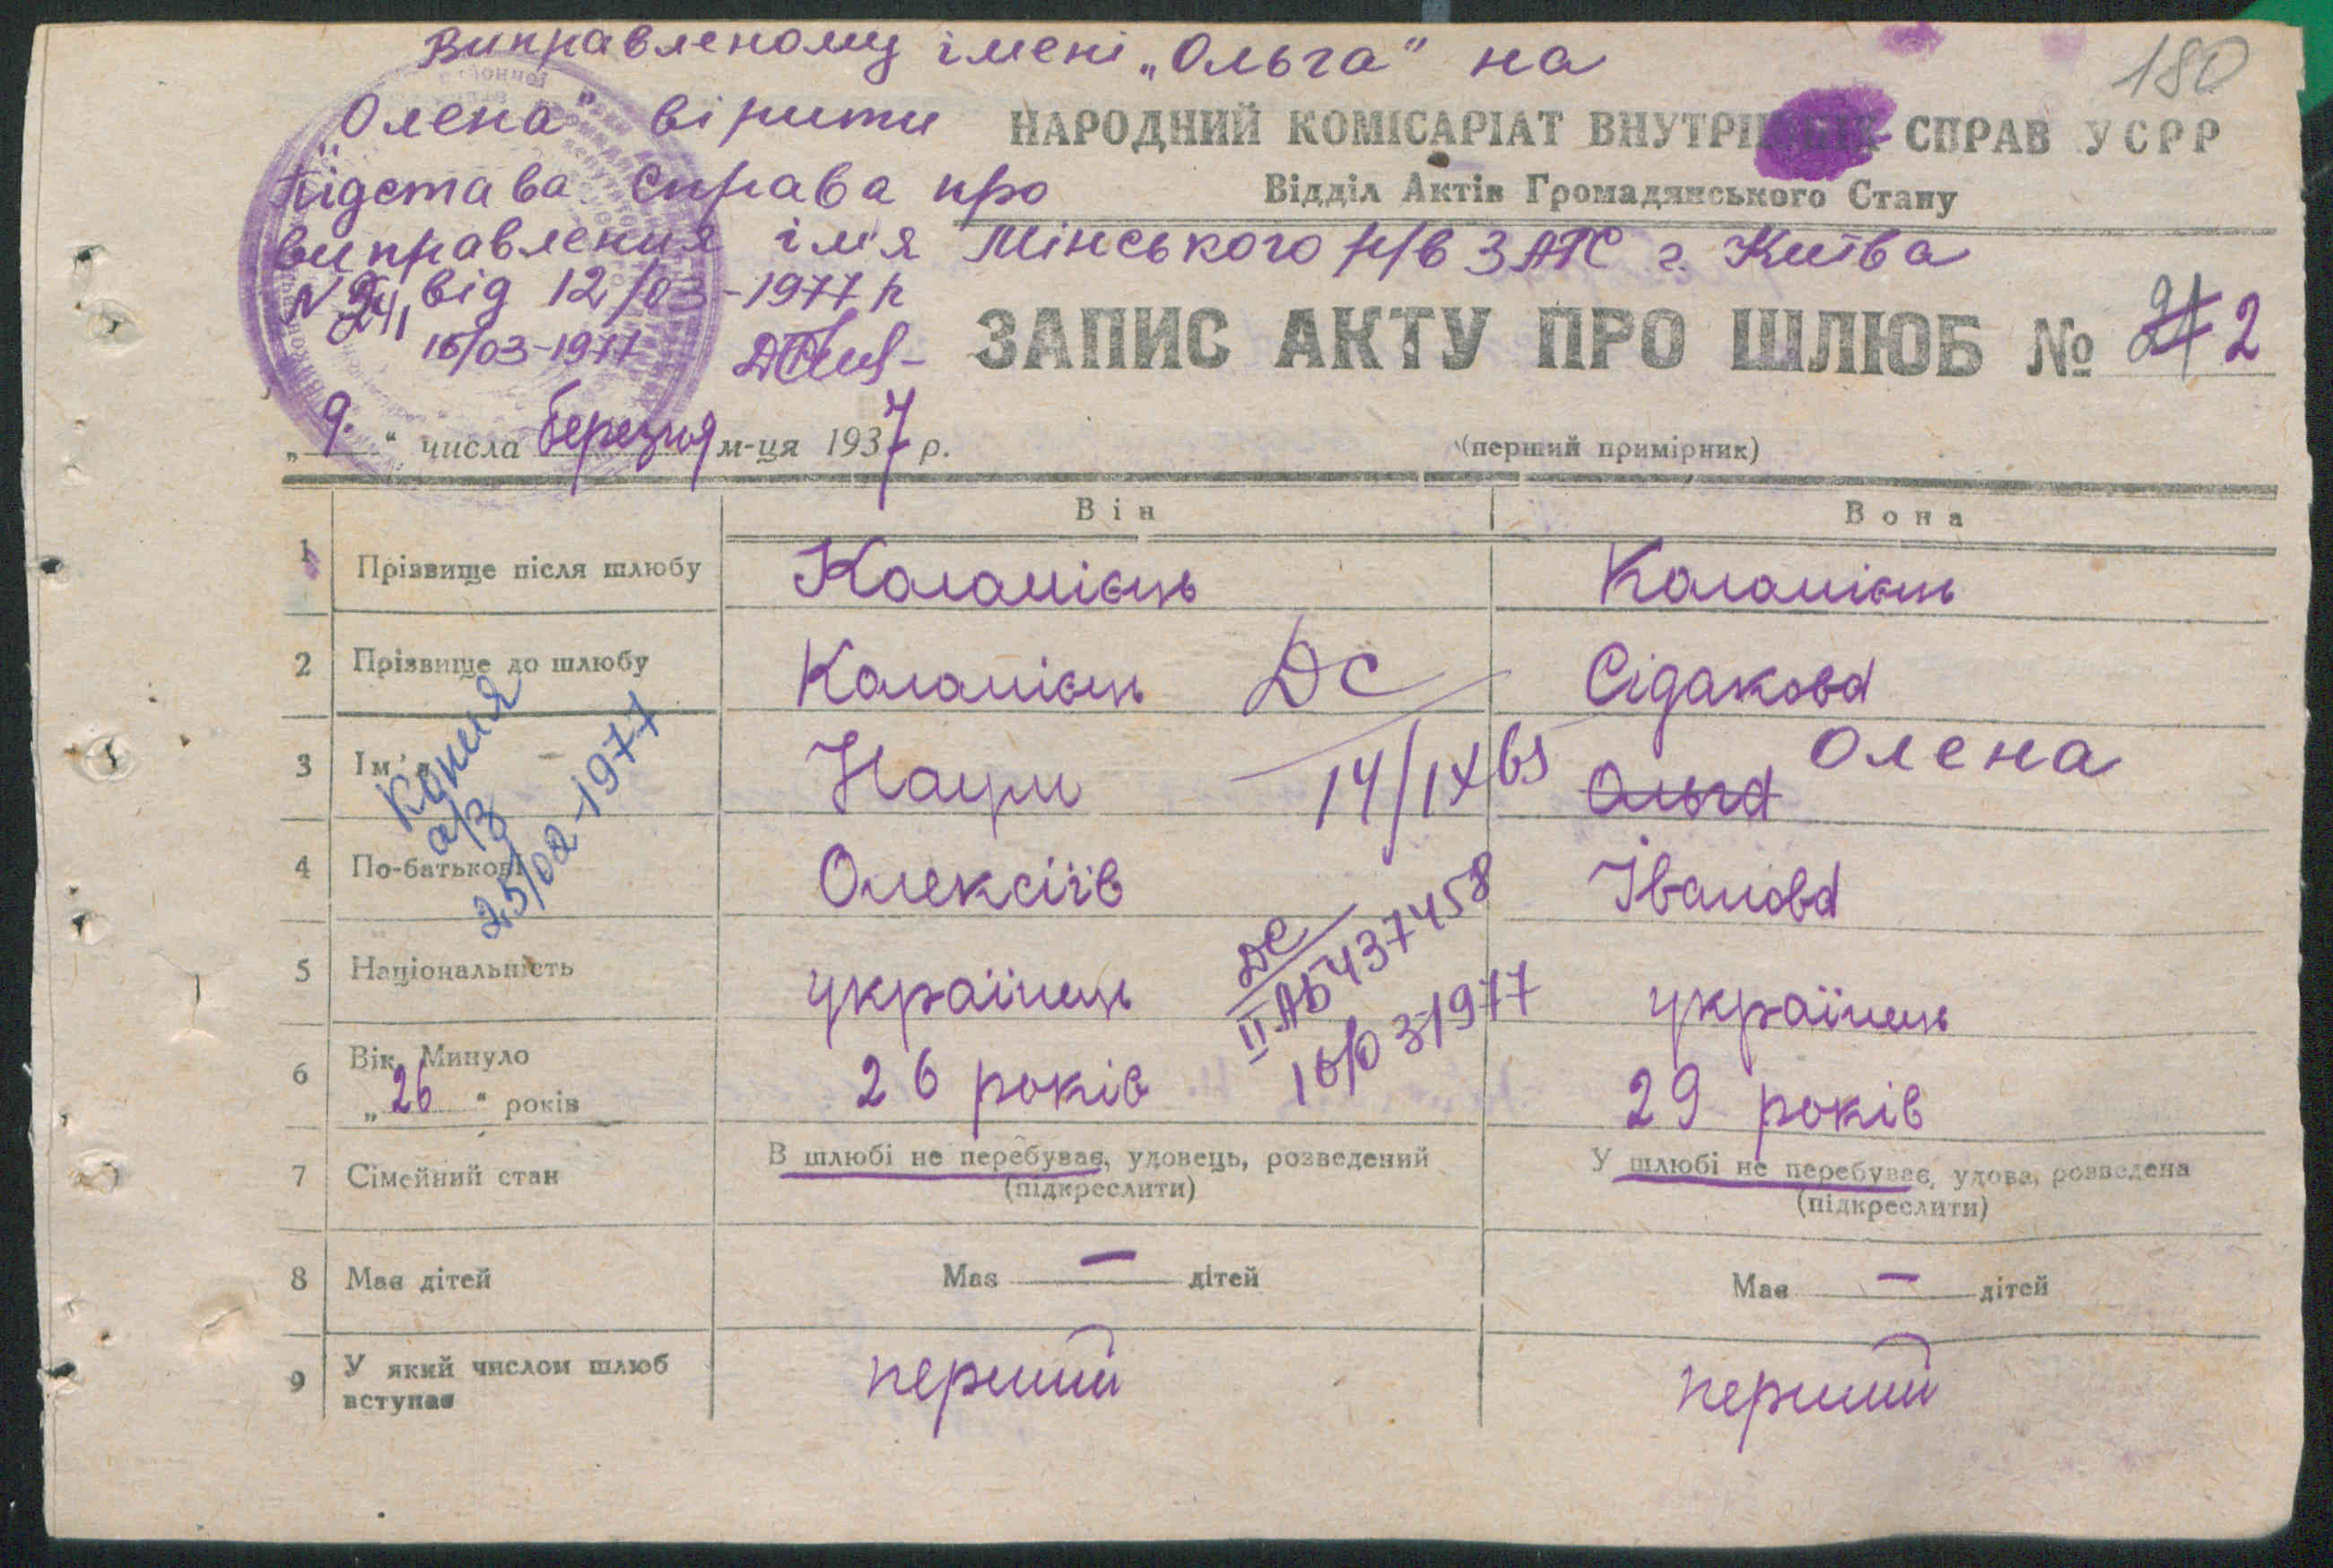 Виправленому імені „Ольга" на
„Олена" вірити
Підстава Справа про
виправлення ім'я Мінського р/в ЗАГС г. Київа
від 12/03-1977 р
16/03-1977
180
НАРОДНИЙ КОМІСАРІАТ ВНУТРІШНІХ СПРАВ УСРР
Відділ Актів Громадянського Стану
ЗАПИС АКТУ ПРО ШЛЮБ № 2
„ 9. " числа березня м-ця 1937 р.
(перший примірник)
Він Вона
1 Прізвище після шлюбу Коломієць Коломієць
2 Прізвище до шлюбу Коломієць Сідакова
ДС
14/IX 65
3 Ім'я Наум Ольга Олена
Копия
а/з
25/02-1977
4 По-батькові Олексіїв Іванова
ДС
II АБ 437458
16/03-1977
5 Національність українець українець
6 Вік Минуло 26 років 29 років
„ 26 " років
7 Сімейний стан В шлюбі не перебуває, удовець, розведений У шлюбі не перебуває, удова, розведена
(підкреслити) (підкреслити)
8 Має дітей Має — дітей Має — дітей
9 У який числом шлюб перший перший
вступає